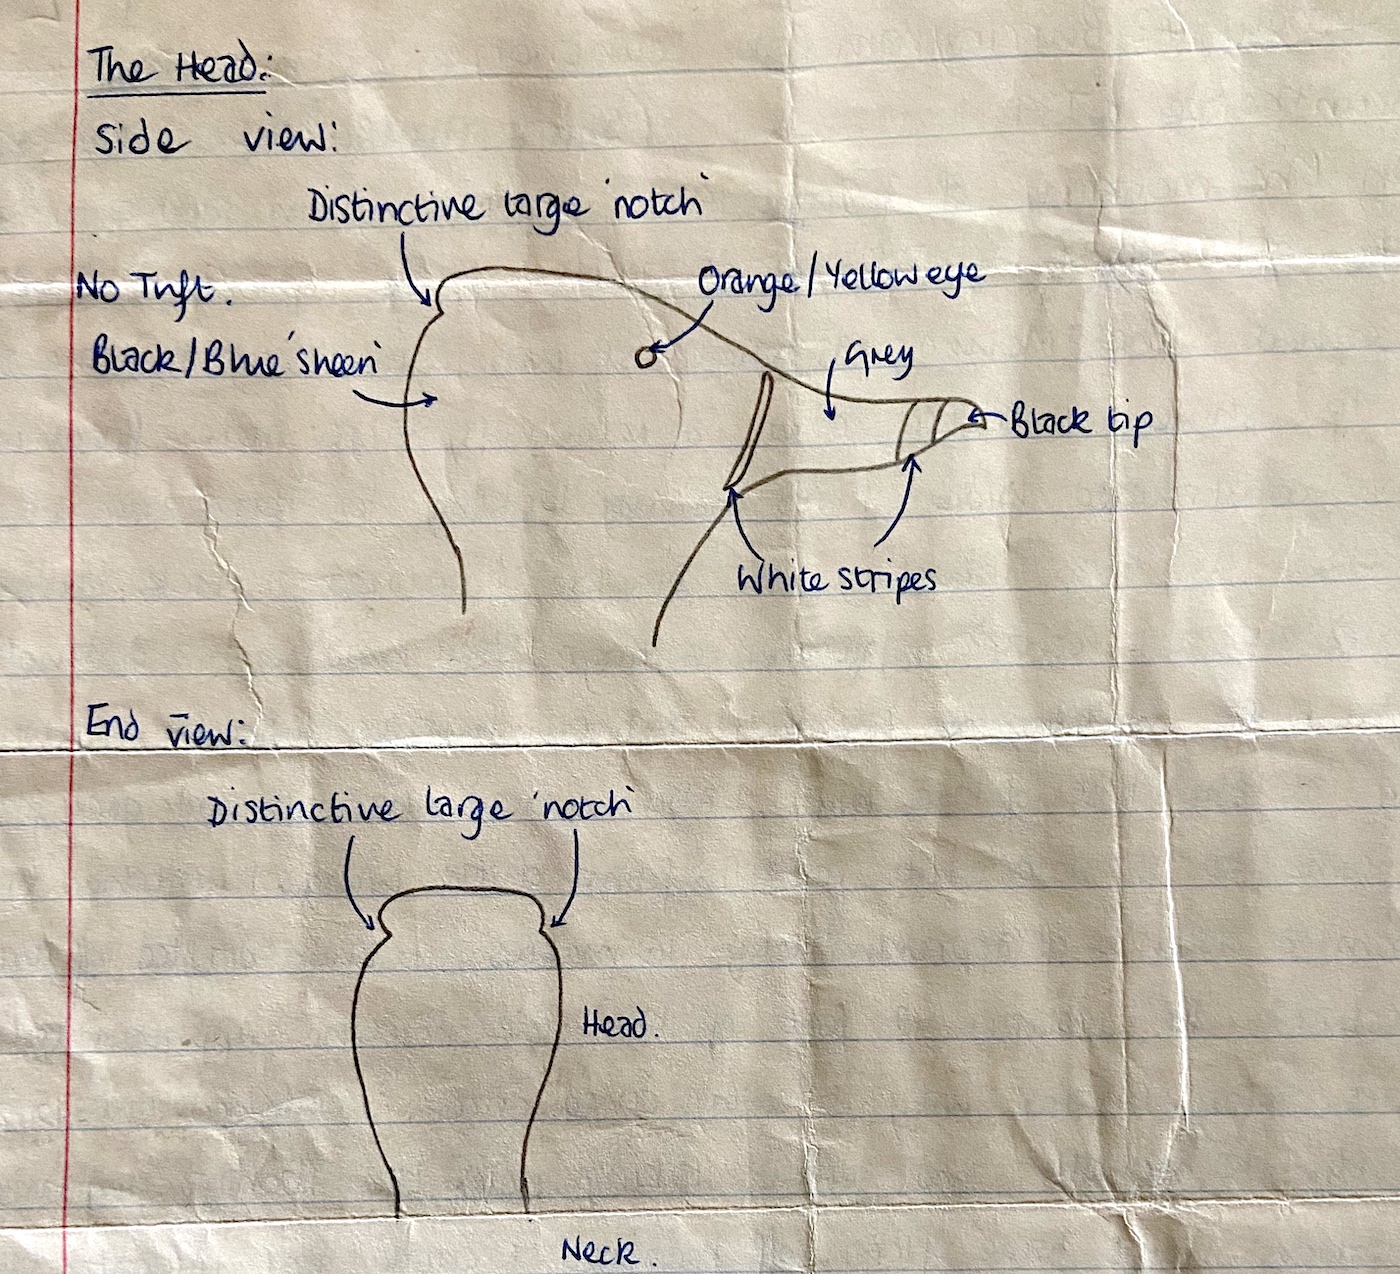 The Head:
Side view:
Distinctive large 'notch'
No Tuft.
Orange/Yellow eye
Black/Blue 'sheen'
Grey
Black tip
White stripes
End view:
Distinctive large 'notch'
Head.
Neck.